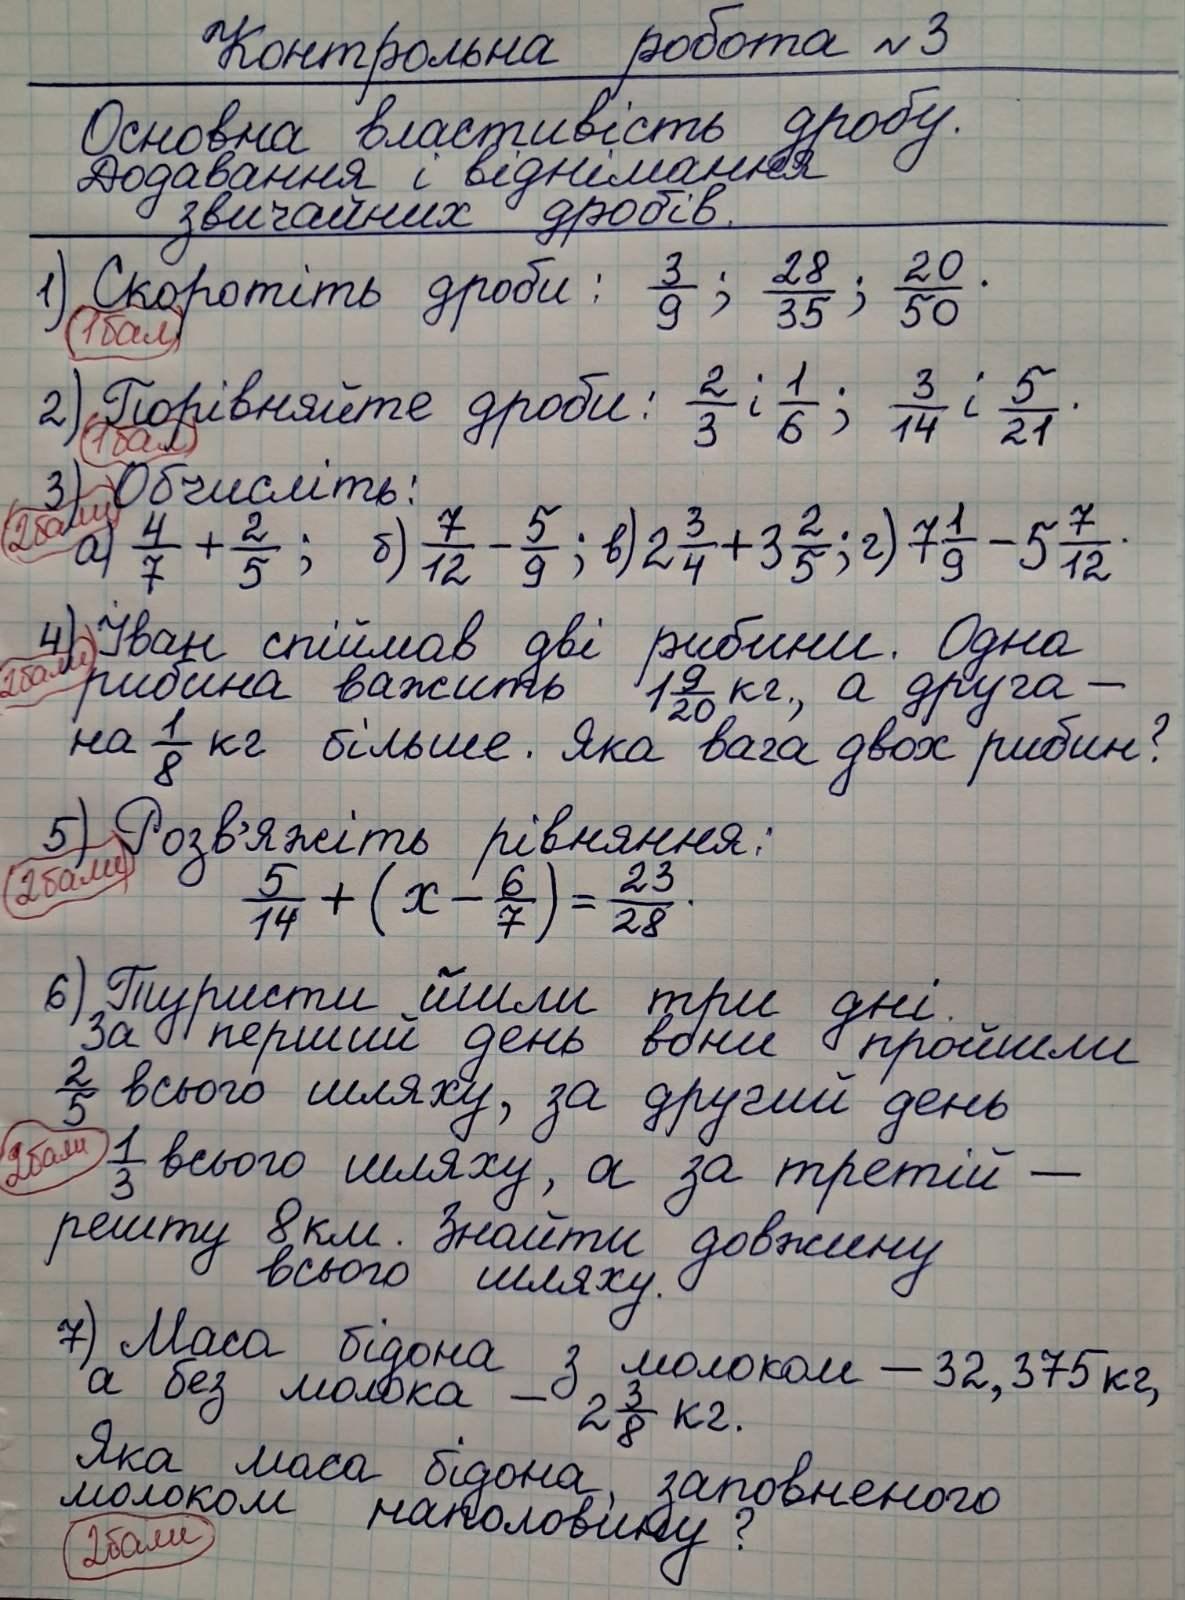 Контрольна робота №3
Основна властивість дробу.
Додавання і віднімання
звичайних дробів.
1) Скоротіть дроби: 3/9; 28/35; 20/50.
(1бал)
2) Порівняйте дроби: 2/3 і 1/6; 3/14 і 5/21.
(1бал)
3) Обчисліть:
(2бали)
а) 4/7 + 2/5; б) 7/12 - 5/9; в) 2 3/4 + 3 2/5; г) 7 1/9 - 5 7/12.
4) Іван спіймав дві рибини. Одна
(2бали)
рибина важить 1 9/20 кг., а друга –
на 1/8 кг більше. Яка вага двох рибин?
5) Розв'яжіть рівняння:
(2бали)
5/14 + (x - 6/7) = 23/28.
6) Туристи йшли три дні.
За перший день вони пройшли
2/5 всього шляху, за другий день
(2бали)
1/3 всього шляху, а за третій –
решту 8км. Знайти довжину
всього шляху.
7) Маса бідона з молоком – 32,375 кг,
а без молока – 2 3/8 кг.
Яка маса бідона, заповненого
молоком наполовину?
(2бали)